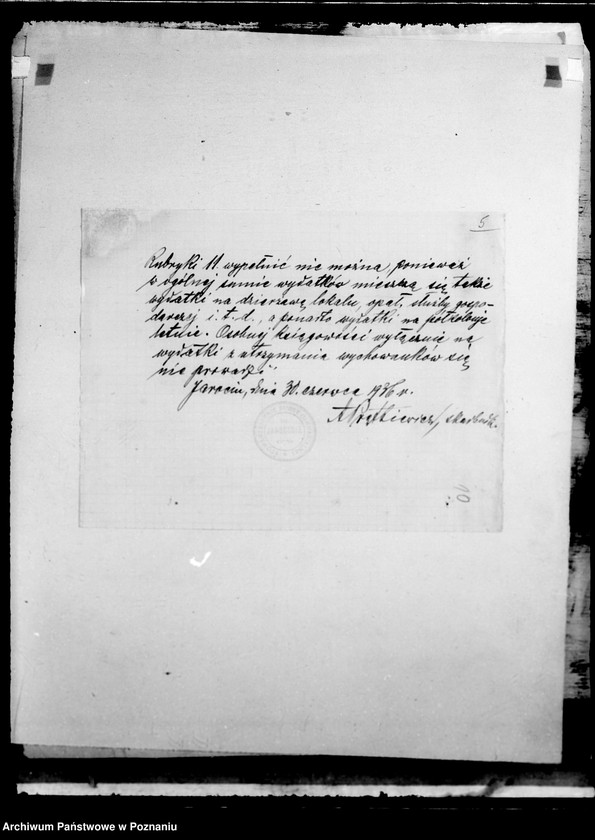 5
Rubryki 11. wypełnić nie można, ponieważ
w ogólnej sumie wydatków mieszczą się także
wydatki na dzierżawę lokalu, opał, służby gospo-
darczej i.t.d., a ponadto wydatki na półkolonje
letnie. Osobnej księgowości wyłącznie na
wydatki z utrzymania wychowanków się
nie prowadzi.
Jarocin, dnia 30. czerwca 1936 r.
skarbnik.
10
Archiwum Państwowe w Poznaniu